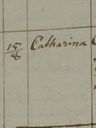 15/8 Catharina